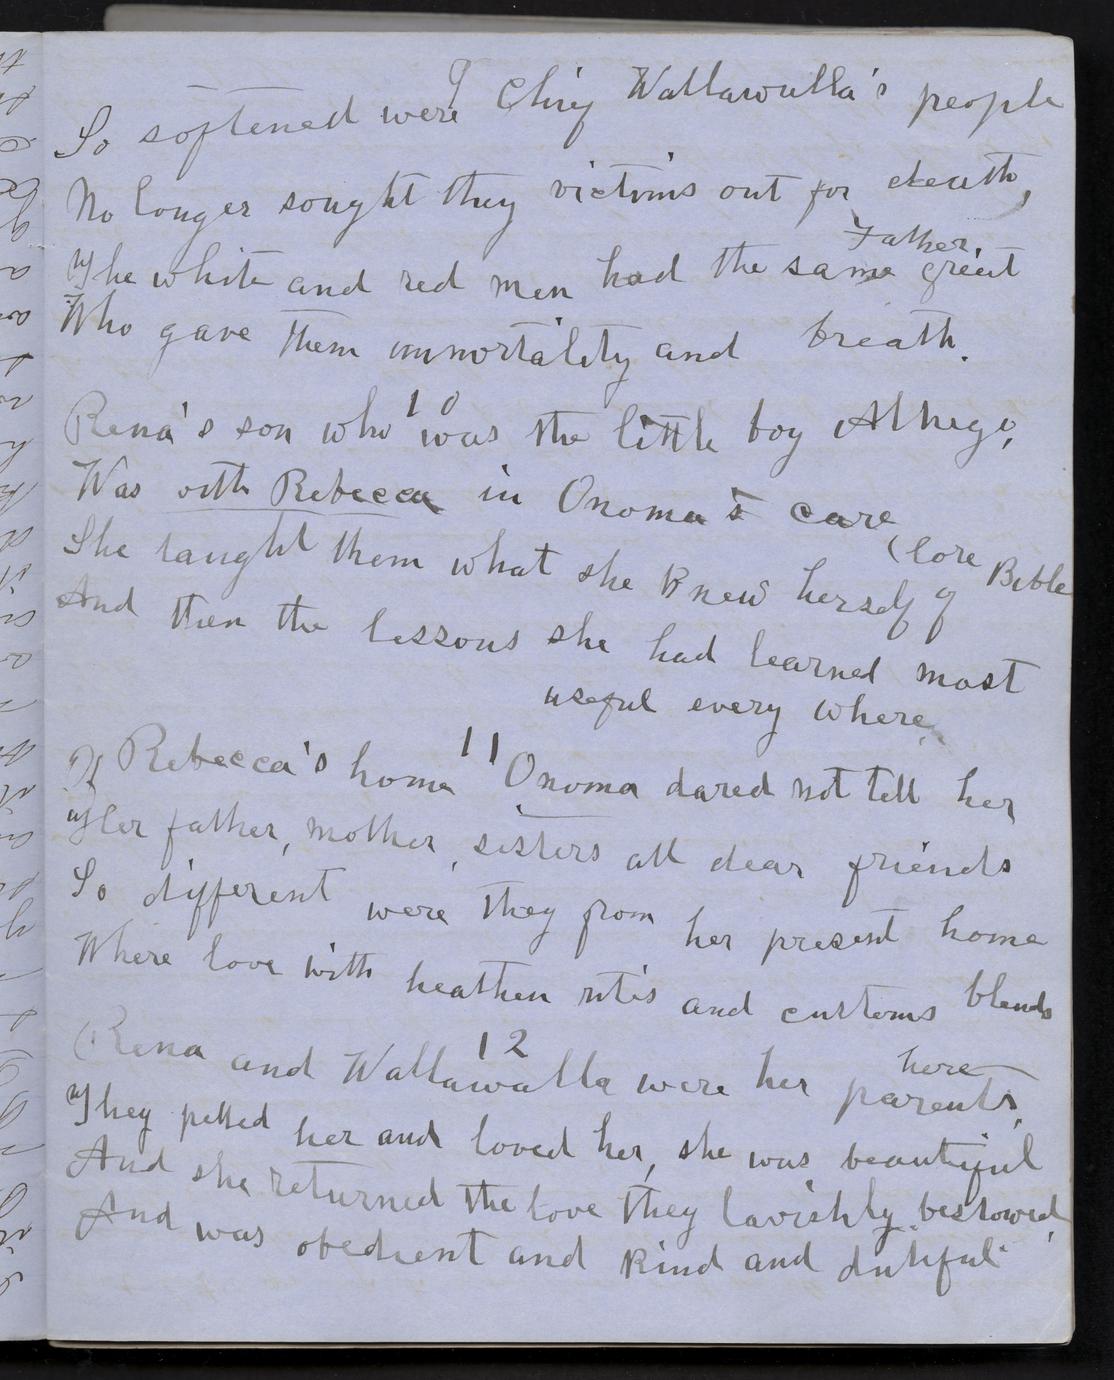 9
So softened were Chief Wallawulla's people
No longer sought they victims out for death,
The white and red men had the same great Father.
Who gave them immortality and breath.
10
Rena's son who was the little boy Alhego,
Was with Rebecca in Onoma's care
She taught them what she knew herself of Bible (lore
And then the lessons she had learned most
useful every where.
11
Of Rebecca's home Onoma dared not tell her
Her father, mother, sisters all dear friends
So different were they from her present home
Where love with heathen rites and customs blends
12
Rena and Wallawalla were her parents here
They petted her and loved her, she was beautiful
And she returned the love they lavishly bestowed,
And was obedient and kind and dutiful